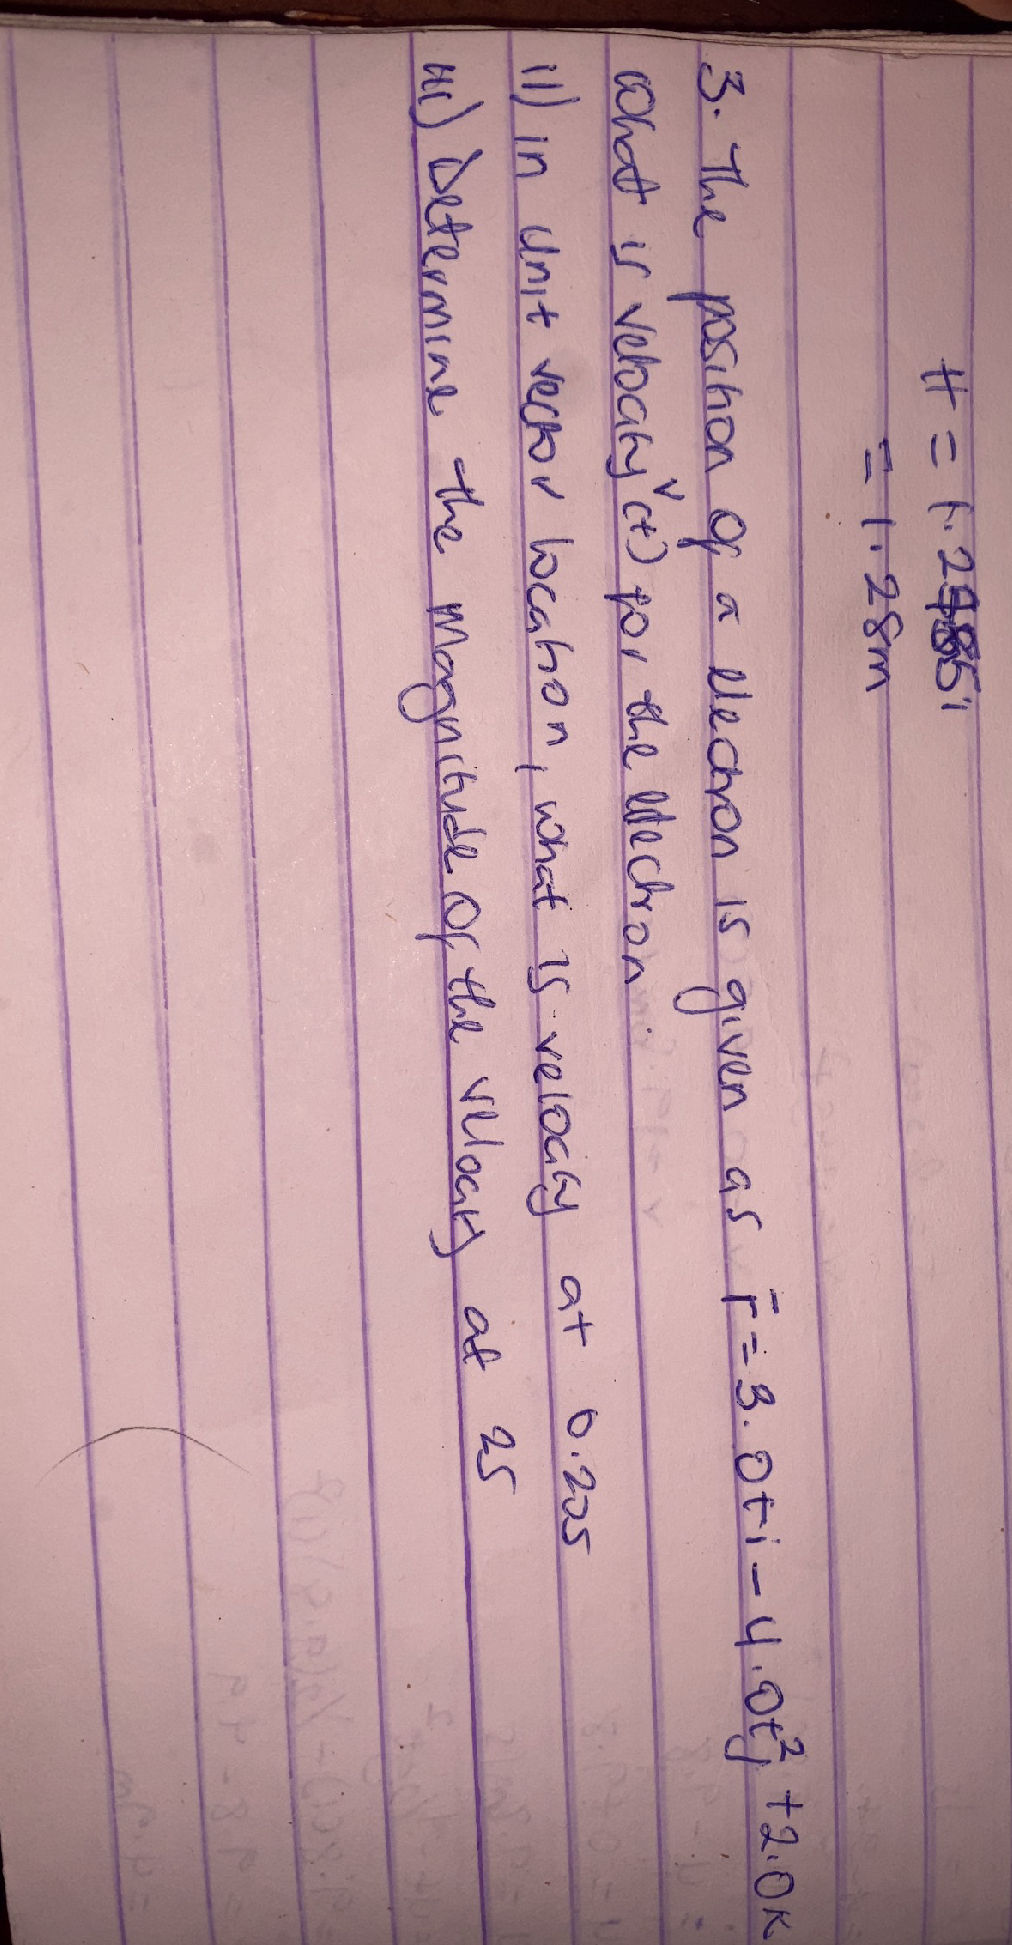 H = 1.285
= 1.28m
3. The position of a electron is given as r̄ = 3.0ti - 4.0t²j + 2.0k
what is velocity v(t) for the electron
ii) in unit vector location, what is velocity at 0.20s
iii) Determine the magnitude of the velocity at 2s